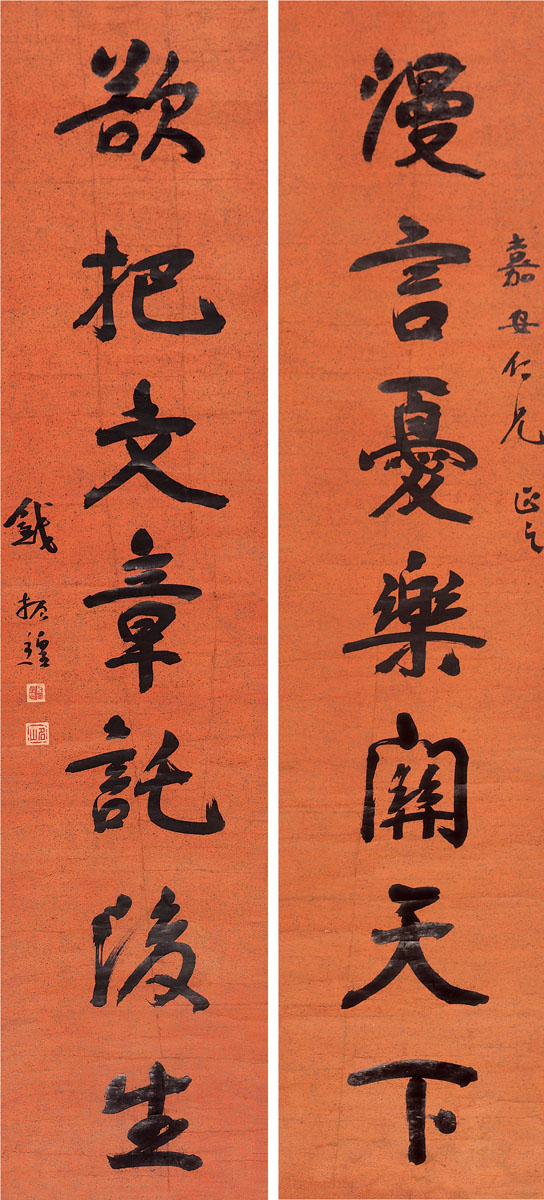 嘉安仁兄 正之
漫言憂樂關天下
欲把文章託後生
錢振鍠
名山